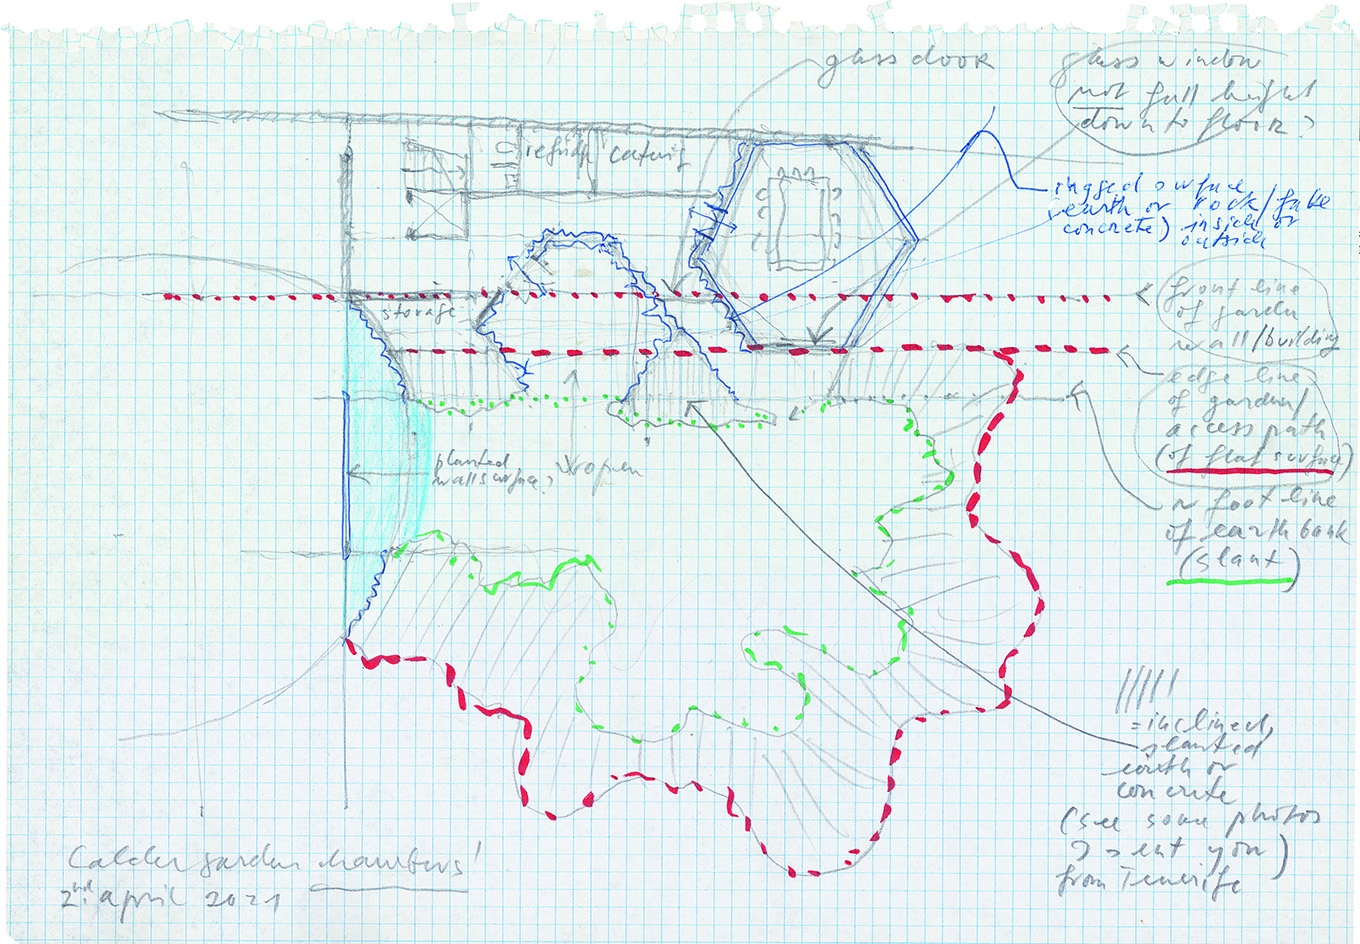 glass door
glass window
not full height
down to floor?
refridg catering
rugged surface
(earth or rock/fake
concrete) inside or
outside
storage
front line
of garden
wall/building
edge line
of garden/
access path
(of flat surface)
planted
wall surface?
open
~ foot line
of earth bank
(slant)
= inclined,
slanted
earth or
concrete
(see some photos
I sent you)
from Tenerife
Calder garden
2nd. april 2021